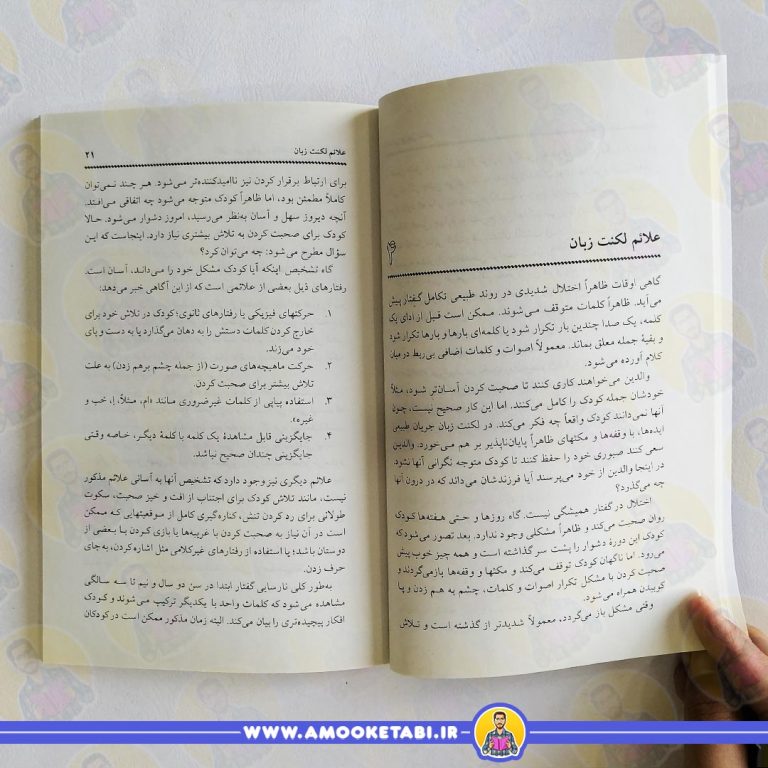 علائم لکنت زبان
گاهی اوقات ظاهراً اختلال شدیدی در روند طبیعی تکامل گفتار پیش
می‌آید. ظاهراً کلمات متوقف می‌شوند. ممکن است قبل از ادای یک
کلمه، یک صدا چندین بار تکرار شود یا کلمه‌ای بارها و بارها تکرار شود
و بقیهٔ جمله معلق بماند. معمولاً اصوات و کلمات اضافی بی‌ربط در میان
کلام آورده می‌شود.
والدین می‌خواهند کاری کنند تا صحبت کردن آسان‌تر شود، مثلاً
خودشان جمله کودک را کامل می‌کنند. اما این کار صحیح نیست، چون
آنها نمی‌دانند کودک واقعاً چه فکر می‌کند. در لکنت زبان جریان طبیعی
ایده‌ها، با وقفه‌ها و مکثهای ظاهراً پایان‌ناپذیر بر هم می‌خورد. والدین
سعی کنند صبوری خود را حفظ کنند تا کودک متوجه نگرانی آنها نشود.
در اینجا والدین از خود می‌پرسند آیا فرزندشان می‌داند که در درون آنها
چه می‌گذرد؟
اختلال در گفتار همیشگی نیست. گاه روزها و حتی هفته‌ها کودک
روان صحبت می‌کند و ظاهراً مشکلی وجود ندارد. بعد تصور می‌شود که
کودک این دورهٔ دشوار را پشت سر گذاشته است و همه چیز خوب پیش
می‌رود. اما ناگهان کودک توقف می‌کند و مکثها و وقفه‌ها بازمی‌گردند و
صحبت کردن با مشکل تکرار اصوات و کلمات، چشم به هم زدن و پا
کوبیدن همراه می‌شود.
وقتی مشکل باز می‌گردد، معمولاً شدیدتر از گذشته است و تلاش
علائم لکنت زبان ۲۱
برای ارتباط برقرار کردن نیز ناامیدکننده‌تر می‌شود. هر چند نمی‌توان
کاملاً مطمئن بود، اما ظاهراً کودک متوجه می‌شود چه اتفاقی می‌افتد.
آنچه دیروز سهل و آسان به‌نظر می‌رسید، امروز دشوار می‌شود. حالا
کودک برای صحبت کردن به تلاش بیشتری نیاز دارد. اینجاست که این
سؤال مطرح می‌شود: چه می‌توان کرد؟
گاه تشخیص اینکه آیا کودک مشکل خود را می‌داند، آسان است.
رفتارهای ذیل بعضی از علائمی است که از این آگاهی خبر می‌دهد:
۱. حرکتهای فیزیکی یا رفتارهای ثانوی؛ کودک در تلاش خود برای
خارج کردن کلمات دستش را به دهان می‌گذارد یا به دست و پای
خود می‌زند.
۲. حرکت ماهیچه‌های صورت (از جمله چشم برهم زدن) به علت
تلاش بیشتر برای صحبت کردن.
۳. استفاده پیاپی از کلمات غیرضروری مانند «ام، مثلاً، اِ، خب و
غیره».
۴. جایگزینی قابل مشاهدهٔ یک کلمه با کلمهٔ دیگر، خاصه وقتی
جایگزینی چندان صحیح نباشد.
علائم دیگری نیز وجود دارد که تشخیص آنها به آسانی علائم مذکور
نیست، مانند تلاش کودک برای اجتناب از افت و خیز صحبت، سکوت
طولانی برای رد کردن تنش، کناره‌گیری کامل از موقعیتهایی که ممکن
است در آن نیاز به صحبت کردن با غریبه‌ها یا بازی کردن با بعضی از
دوستان باشد؛ یا استفاده از رفتارهای غیرکلامی مثل اشاره کردن، به‌جای
حرف زدن.
به‌طور کلی نارسایی گفتار ابتدا در سن دو سال و نیم تا سه سالگی
مشاهده می‌شود که کلمات واحد با یکدیگر ترکیب می‌شوند و کودک
افکار پیچیده‌تری را بیان می‌کند. البته زمان مذکور ممکن است در کودکان
WWW.AMOOKETABI.IR